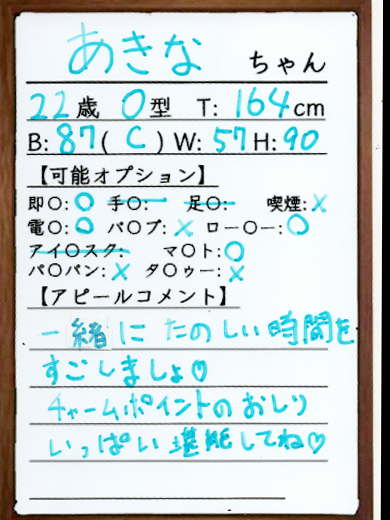 あきな ちゃん
22歳 O型 T: 164cm
B: 87(C) W: 57 H: 90
【可能オプション】
即〇: ○ 手〇: 足〇: 喫煙: ×
電〇: ○ バ〇ブ: × ロー〇ー: ○
アイ〇スク: マ〇ト: ○
パ〇パン: × タ〇ゥー: ×
【アピールコメント】
一緒にたのしい時間を
すごしましょ♡
チャームポイントのおしり
いっぱい堪能してね♡